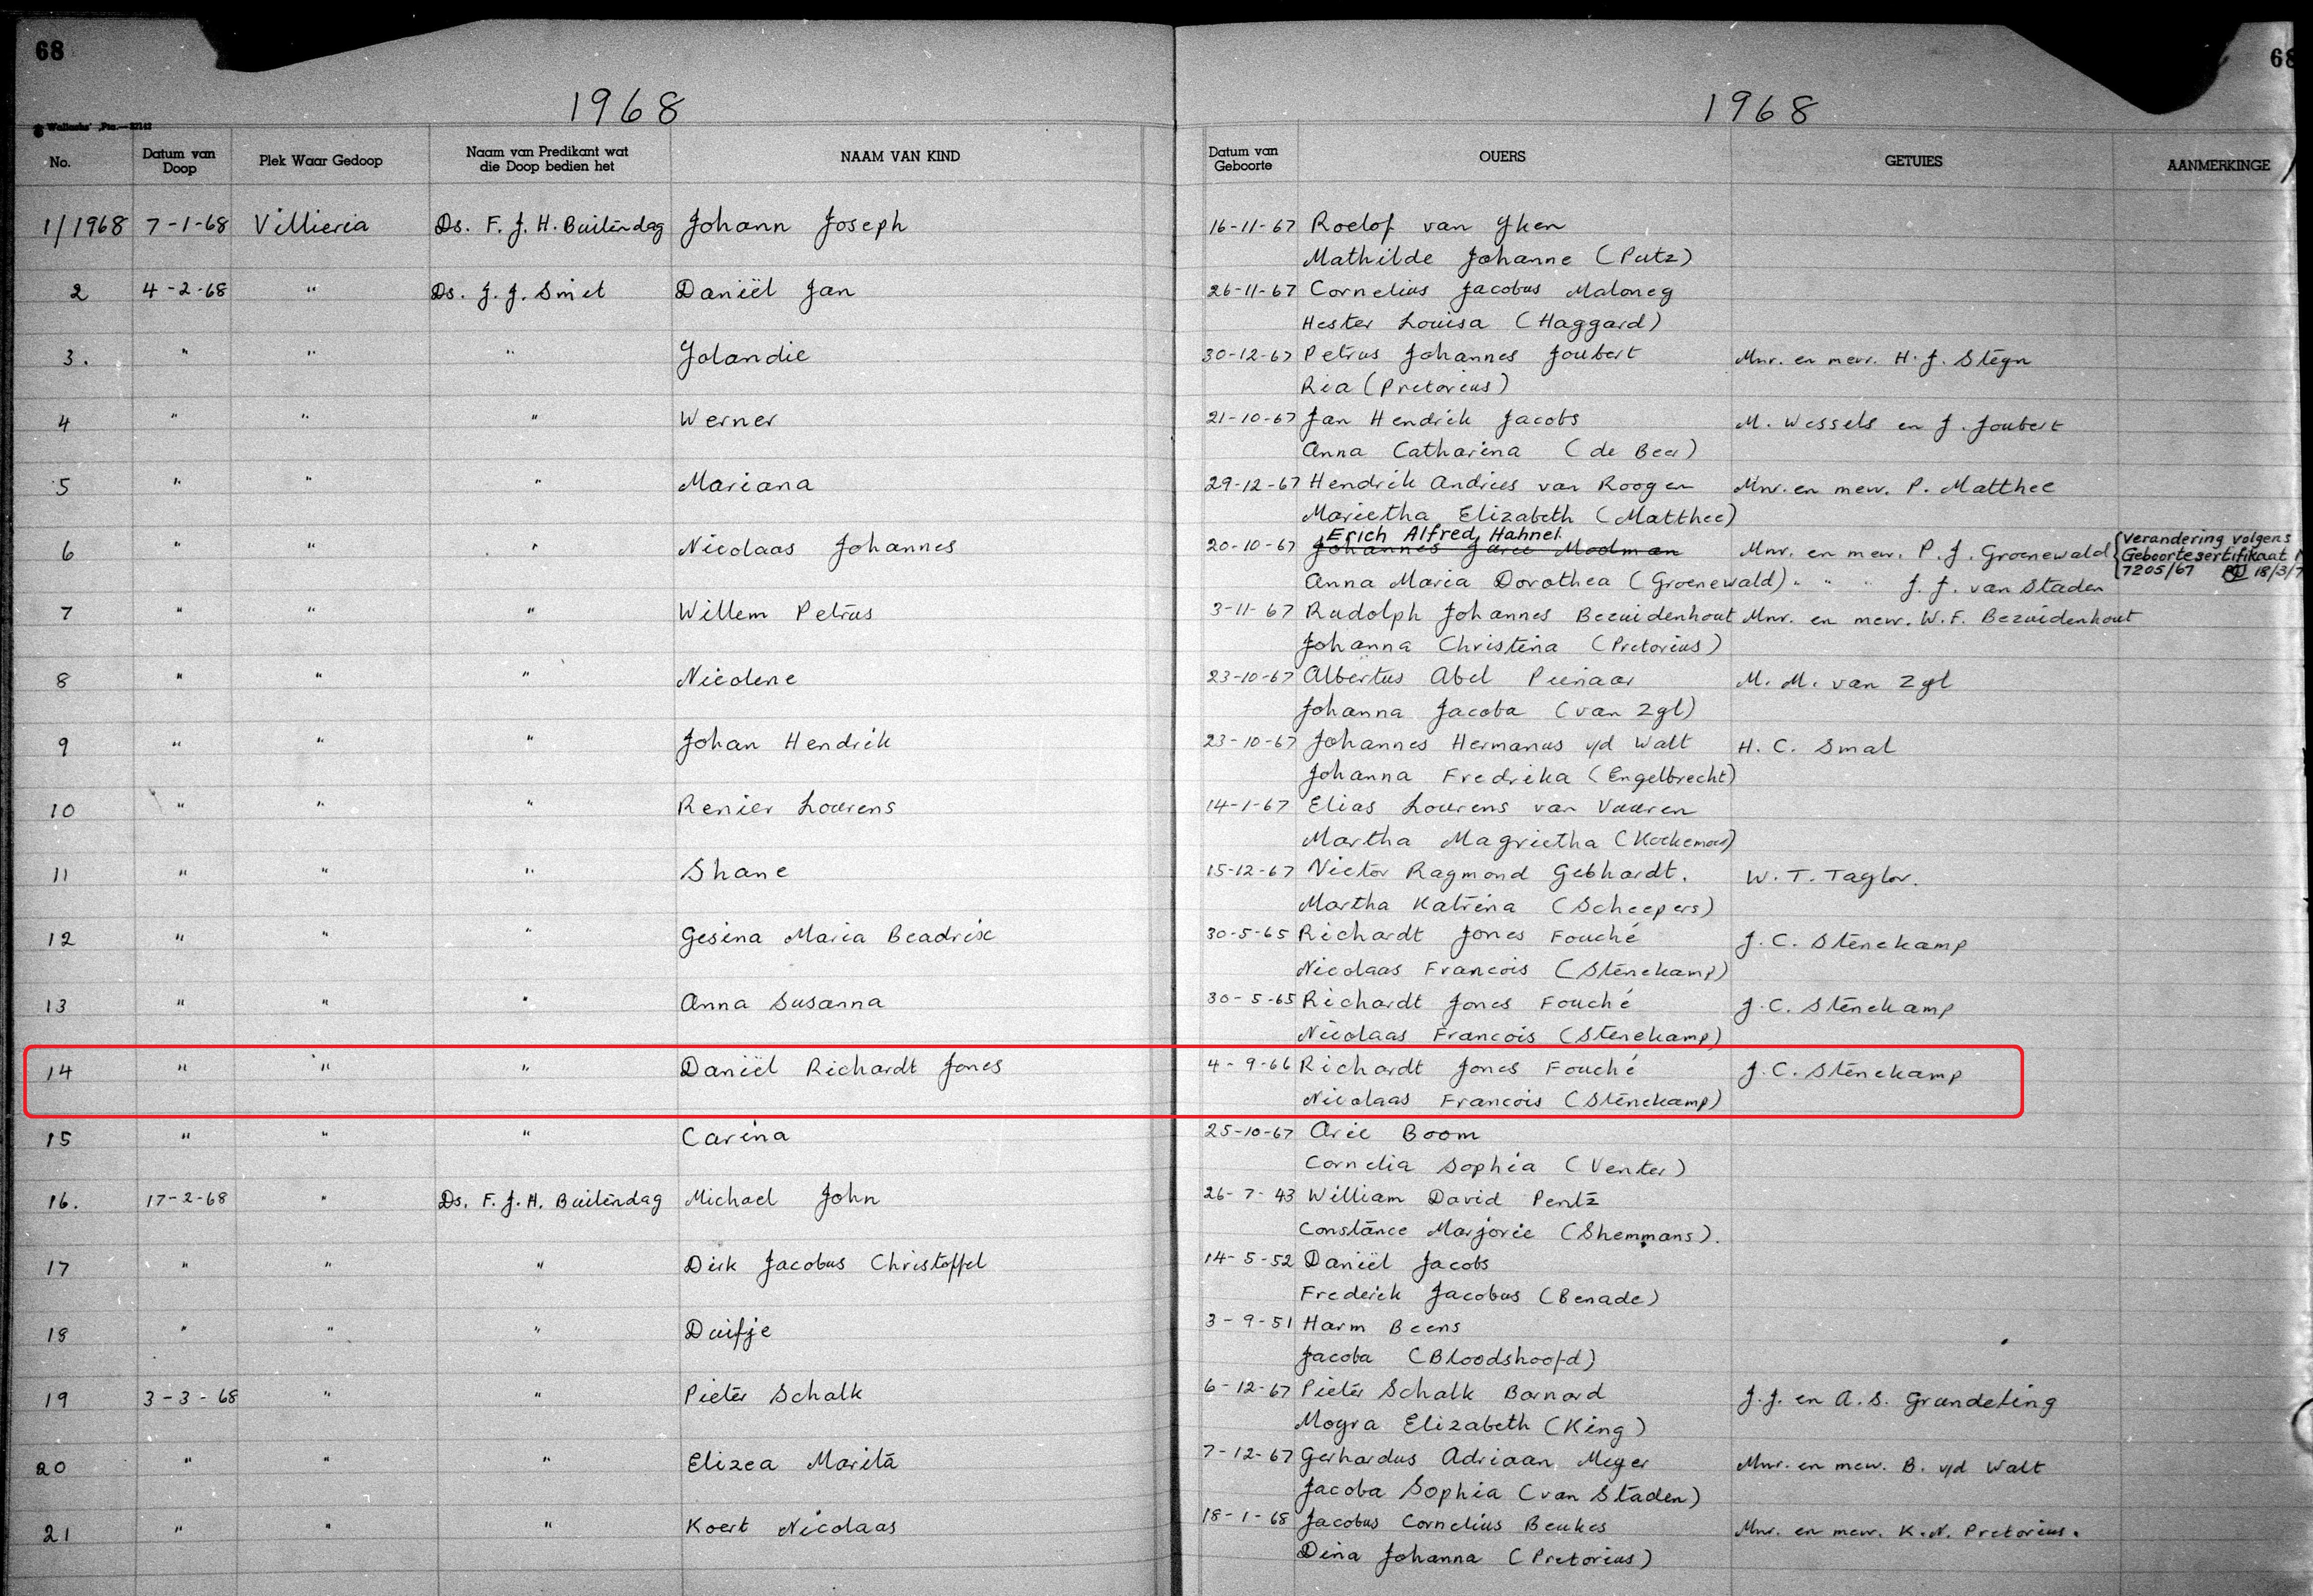 68 68
1968 1968
No. Datum van Doop Plek Waar Gedoop Naam van Predikant wat die Doop bedien het NAAM VAN KIND Datum van Geboorte OUERS GETUIES AANMERKINGE
1/1968 7-1-68 Villieria Ds. F. J. H. Buitendag Johann Joseph 16-11-67 Roelof van Yken
Mathilde Johanne (Putz)
2 4-2-68 " Ds. J. J. Smit Daniël Jan 26-11-67 Cornelius Jacobus Maloney
Hester Louisa (Haggard)
3. " " " Yolandie 30-12-67 Petrus Johannes Joubert Mnr. en mevr. H. J. Steyn
Ria (Pretorius)
4 " " " Werner 21-10-67 Jan Hendrik Jacobs M. Wessels en J. Joubert
Anna Catharina (de Beer)
5 " " " Mariana 29-12-67 Hendrik Andries van Rooyen Mnr. en mevr. P. Matthee
Marietha Elizabeth (Matthee)
Erich Alfred Hahnel
6 " " " Nicolaas Johannes 20-10-67 Johannes Jurie Moolman Mnr. en mevr. P. J. Groenewald {Verandering volgens
Geboortesertifikaat
Anna Maria Dorothea (Groenewald) " " " J. J. van Staden 7205/67 18/3/7
7 " " " Willem Petrus 3-11-67 Rudolph Johannes Bezuidenhout Mnr. en mevr. W. F. Bezuidenhout
Johanna Christina (Pretorius)
8 " " " Nicolene 23-10-67 Albertus Abel Pienaar M. M. van Zyl
Johanna Jacoba (van Zyl)
9 " " " Johan Hendrik 23-10-67 Johannes Hermanus v/d Walt H. C. Smal
Johanna Fredrika (Engelbrecht)
10 " " " Renier Lourens 14-1-67 Elias Lourens van Vuuren
Martha Magrietha (Koekemoer)
11 " " " Shane 15-12-67 Victor Raymond Gebhardt. W. T. Taylor.
Martha Katrina (Scheepers)
12 " " " Gesina Maria Beadrix 30-5-65 Richardt Jones Fouché J. C. Stenekamp
Nicolaas Francois (Stenekamp)
13 " " " Anna Susanna 30-5-65 Richardt Jones Fouché J. C. Stenekamp
Nicolaas Francois (Stenekamp)
14 " " " Daniël Richardt Jones 4-9-66 Richardt Jones Fouché J. C. Stenekamp
Nicolaas Francois (Stenekamp)
15 " " " Carina 25-10-67 Arie Boom
Cornelia Sophia (Venter)
16. 17-2-68 " Ds. F. J. H. Buitendag Michael John 26-7-43 William David Pentz
Constance Marjorie (Shemmans).
17 " " " Dirk Jacobus Christoffel 14-5-52 Daniël Jacobs
Frederick Jacobus (Benade)
18 " " " Duifje 3-9-51 Harm Beens
Jacoba (Bloodshoofd)
19 3-3-68 " " Pieter Schalk 6-12-67 Pieter Schalk Barnard J. J. en A. S. Grundeling
Moyra Elizabeth (King)
20 " " " Elizea Marita 7-12-67 Gerhardus Adriaan Meyer Mnr. en mevr. B. v/d Walt
Jacoba Sophia (van Staden)
21 " " " Koert Nicolaas 18-1-68 Jacobus Cornelius Beukes Mnr. en mevr. K. N. Pretorius.
Dina Johanna (Pretorius)